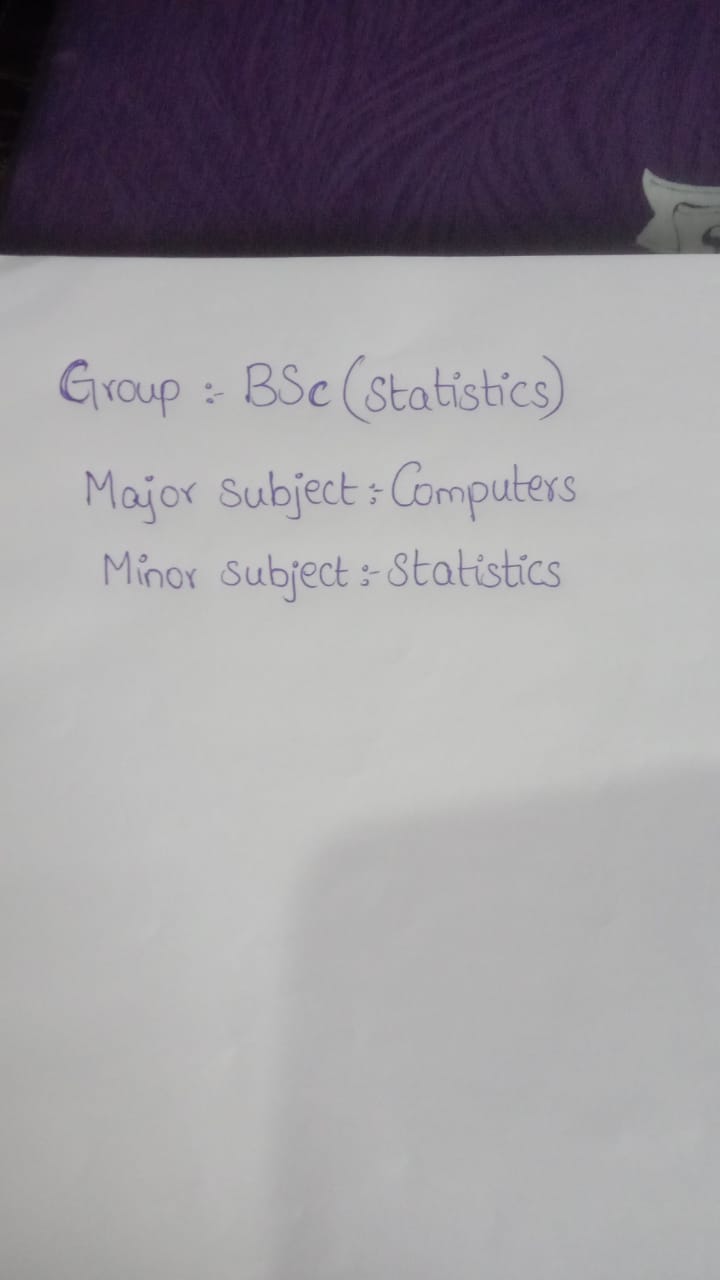 Group :- BSc (Statistics)
Major subject :- Computers
Minor subject :- Statistics